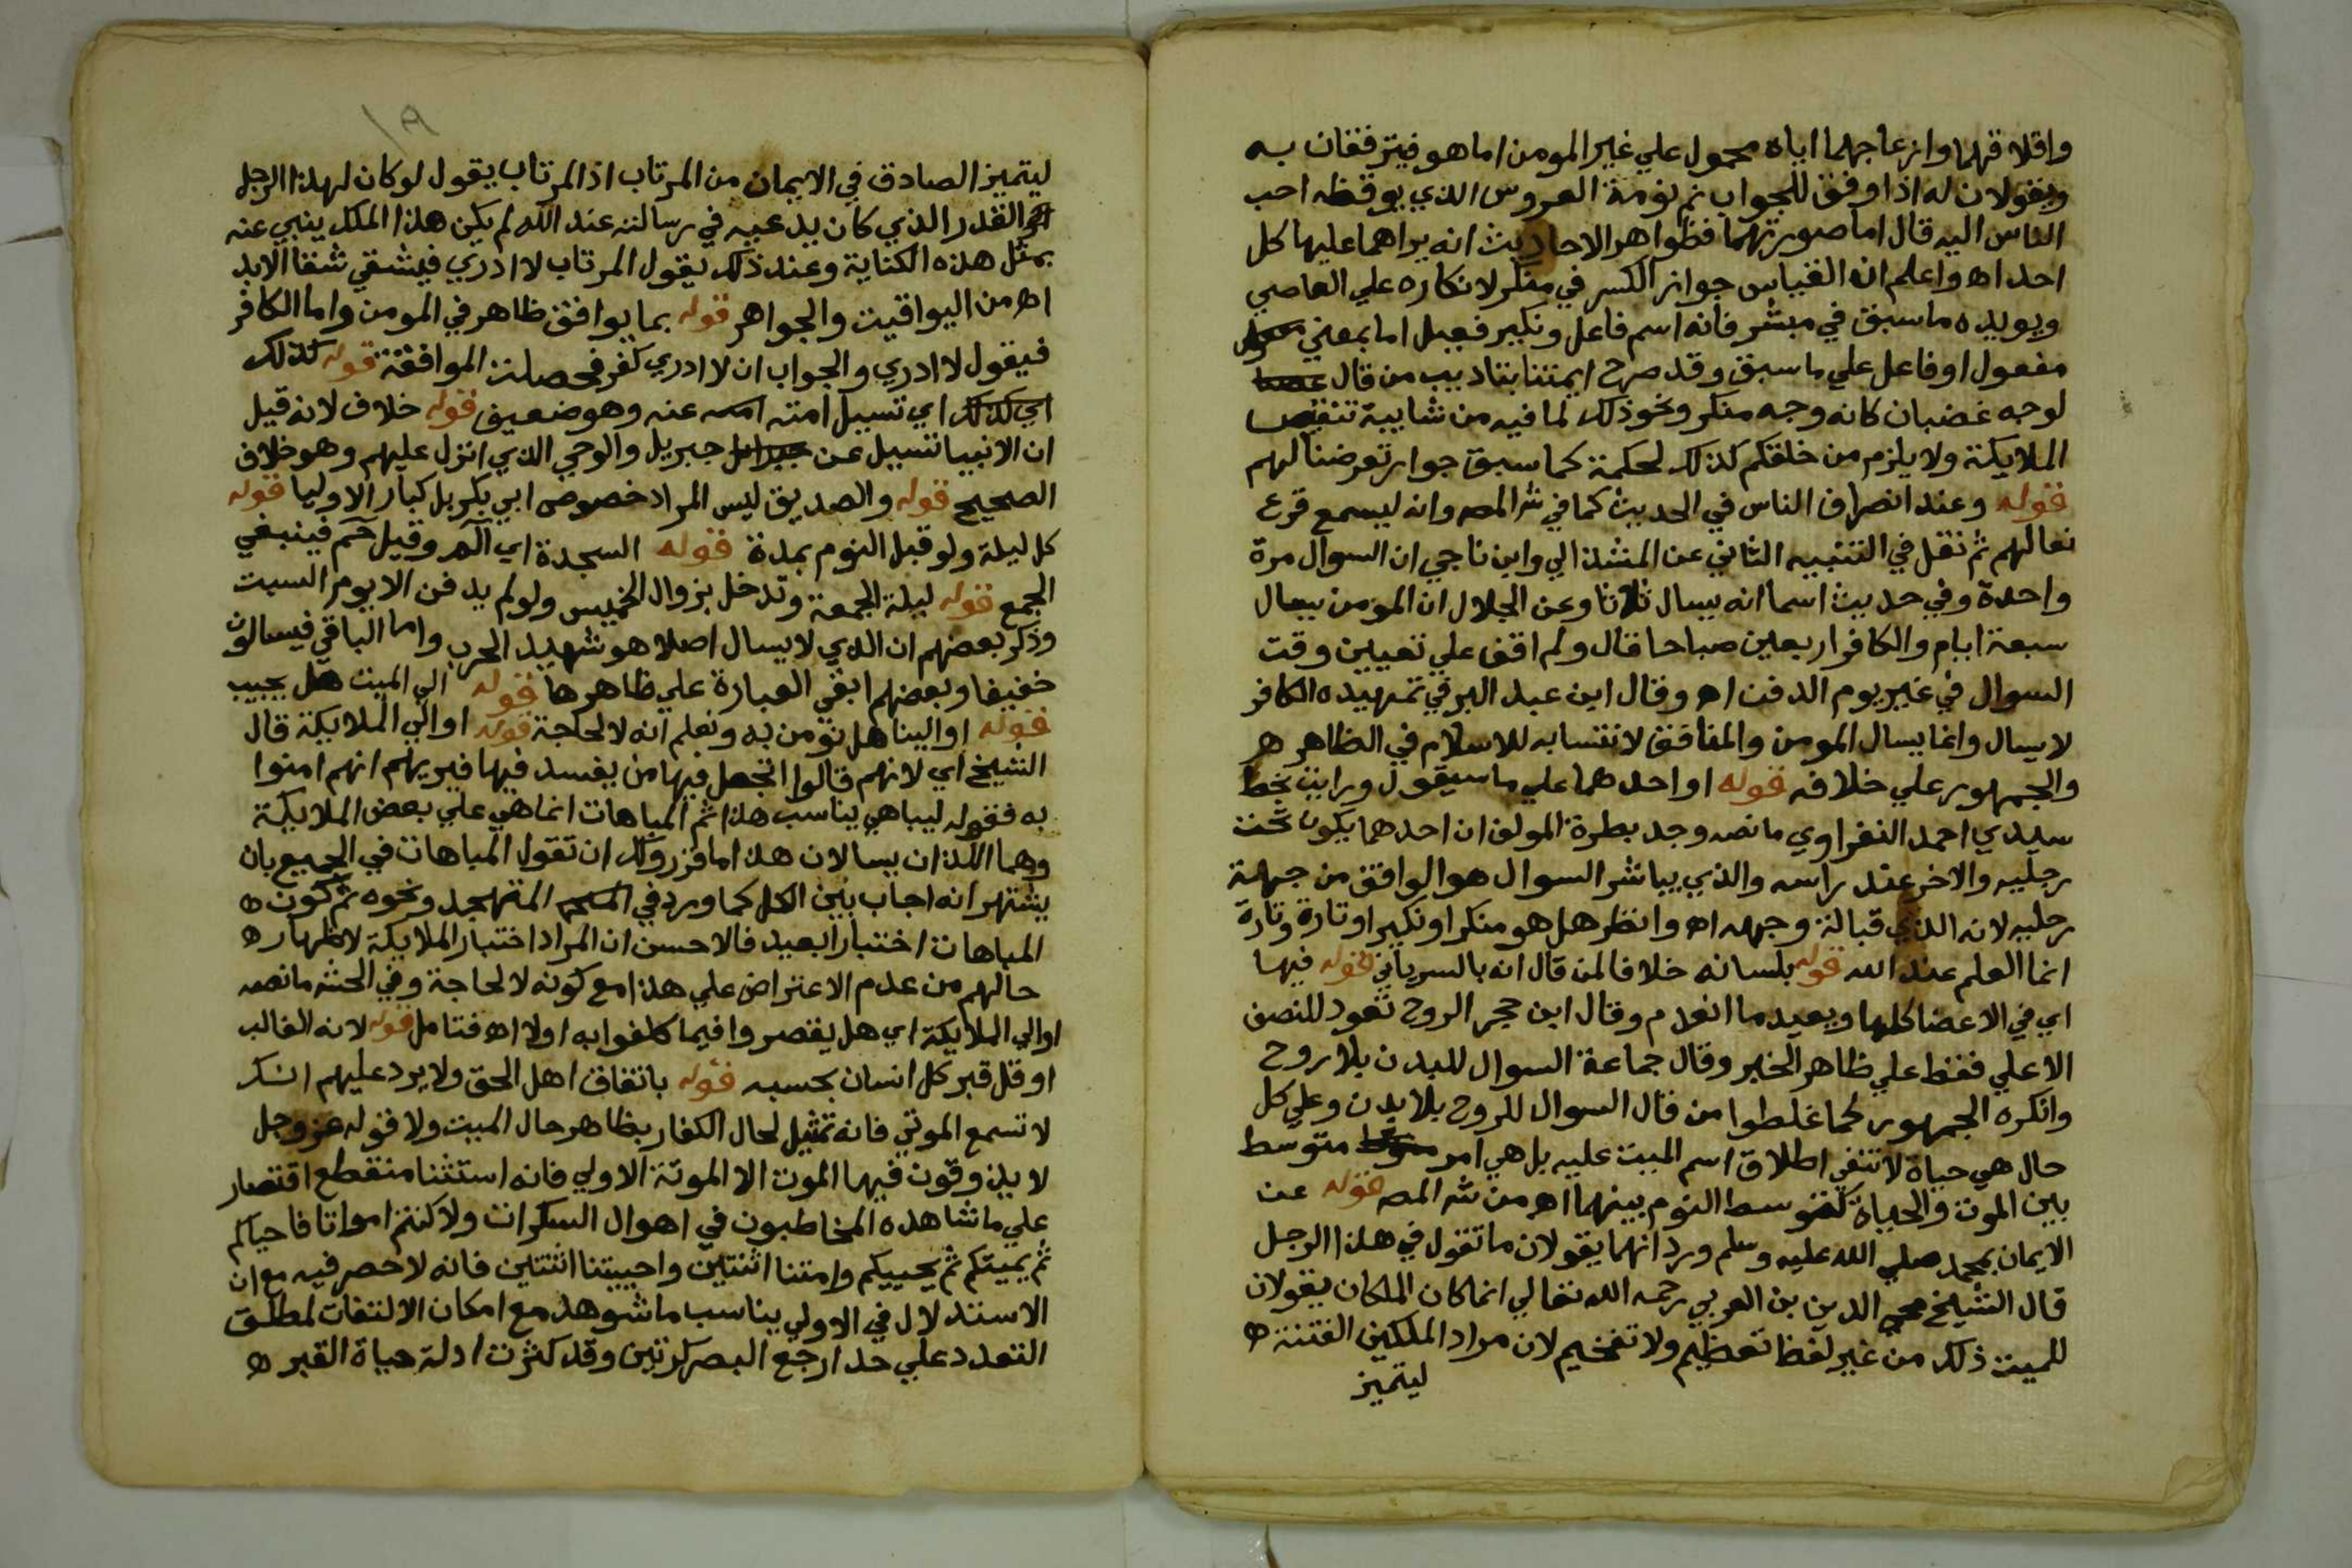 واقلاقهما وازعاجهما اياه محمول علي غير المومن اما هو فيترفقان به
ويقولان له اذا وفق للجواب نم نومة العروس الذي يوقظه احب
الناس اليه قال اما صورتهما فظواهر الاحاديث انه يراهما عليها كل
احد اه واعلم ان القياس جواز الكسر في منكر لانكاره علي العاصي
ويويده ما سبق في مبشر فانه اسم فاعل ونكير فعيل اما بمعني
مفعول او فاعل علي ما سبق وقد صرح ايمتنا بتاديب من قال
لوجه غضبان كانه وجه منكر ونحو ذلك لما فيه من شايبة تنقيص
الملايكة ولا يلزم من خلقكم كذلك لحكمة كما سبق جواز تعرضنا لهم
قوله وعند انصراف الناس في الحديث كما في شر المص وانه ليسمع قرع
نعالهم ثم نقل في التنبيه الثاني عن المشذالي وابن ناجي ان السوال مرة
واحدة وفي حديث اسما انه يسال ثلاثا وعن الجلال ان المومن يسال
سبعة ايام والكافر اربعين صباحا قال ولم اقف علي تعيين وقت
السوال في غير يوم الدفن اه وقال ابن عبد البر في تمهيده الكافر
لا يسال وانما يسال المومن والمنافق لانتسابه للاسلام في الظاهر
والجمهور علي خلافه قوله او احدهما علي ما سيقول ورايت بخط
سيدي احمد النفراوي ما نصه وجد بطرة المولف ان احدهما يكون تحت
رجليه والاخر عند راسه والذي يباشر السوال هو الواقف من جهة
رجليه لانه الذي قبالة وجهه اه وانظر هل هو منكر او نكير او تارة وتارة
انما العلم عند الله قوله بلسانه خلافا لمن قال انه بالسرياني قوله فيها
اي في الاعضا كلها ويعيد ما انعدم وقال ابن حجر الروح تعود للنصف
الاعلي فقط علي ظاهر الخبر وقال جماعة السوال للبدن بلا روح
وانكره الجمهور كما غلطوا من قال السوال للروح بلا بدن وعلي كل
حال هي حياة لا تنفي اطلاق اسم الميت عليه بل هي امر متوسط
بين الموت والحياة كتوسط النوم بينهما اه من شر المص قوله عن
الايمان بمحمد صلي الله عليه وسلم ورد انهما يقولان ما تقول في هذا الرجل
قال الشيخ محي الدين بن العربي رحمه الله تعالي انما كان الملكان يقولان
للميت ذلك من غير لفظ تعظيم ولا تفخيم لان مراد الملكين الفتنة ه
ليتميز
١٩
ليتميز الصادق في الايمان من المرتاب اذ المرتاب يقول لو كان لهذا الرجل
القدر الذي كان يدعيه في رسالته عند الله لم يكن هذا الملك ينبي عنه
بمثل هذه الكناية وعند ذلك يقول المرتاب لا ادري فيشقي شقا الابد
اه من اليواقيت والجواهر قوله بما يوافق ظاهر في المومن واما الكافر
فيقول لا ادري والجواب ان لا ادري كفر فحصلت الموافقة قوله كذلك
اي كذلك اي تسيل امته عنه وهو ضعيف قوله خلاف لانه قيل
ان الانبيا تسيل عن جبريل والوحي الذي انزل عليهم وهو خلاف
الصحيح قوله والصديق ليس المراد خصوص ابي بكر بل كبار الاوليا قوله
كل ليلة ولو قبل النوم بمدة قوله السجدة اي الم وقيل حم فينبغي
الجمع قوله ليلة الجمعة وتدخل بزوال الخميس ولو لم يدفن الا يوم السبت
وذكر بعضهم ان الذي لا يسال اصلا هو شهيد الحرب واما الباقي فيسالون
خفيفا وبعضهم ابقي العبارة علي ظاهرها قوله الي الميت هل يجيب
قوله او الينا هل نومن به ونعلم انه لا لحاجة قوله او الي الملايكة قال
الشيخ اي لانهم قالوا اتجعل فيها من يفسد فيها فيريهم انهم امنوا
به فقوله ليباهي يناسب هذا ثم المباهات انما هي علي بعض الملايكة
وهما اللذان يسالان هذا ما قرر ولك ان تقول المباهات في الجميع بان
يشتهر انه اجاب بين الكل كما ورد في المتهجد ونحوه ثم كون ه
المباهات اختبارا بعيد فالاحسن ان المراد اختبار الملايكة لاظهار ه
حالهم من عدم الاعتراض علي هذا مع كونه لا لحاجة وفي الحشه ما نصه
او الي الملايكة اي هل يقصروا فيما كلفوا به اولا اه فتامل قوله لانه الغالب
او قل قبر كل انسان بحسبه قوله باتفاق اهل الحق ولا يرد عليهم انك
لا تسمع الموتي فانه تمثيل لحال الكفار بظاهر حال الميت ولا قوله عز وجل
لا يذوقون فيها الموت الا الموتة الاولي فانه استثنا منقطع اقتصار
علي ما شاهده المخاطبون في اهوال السكرات ولا كنتم امواتا فاحياكم
ثم يميتكم ثم يحييكم وامتنا اثنتين واحييتنا اثنتين فانه لا حصر فيه مع ان
الاستدلال في الاولي يناسب ما شوهد مع امكان الالتفات لمطلق
التعدد علي حد ارجع البصر كرتين وقد كثرت ادلة حياة القبر ه